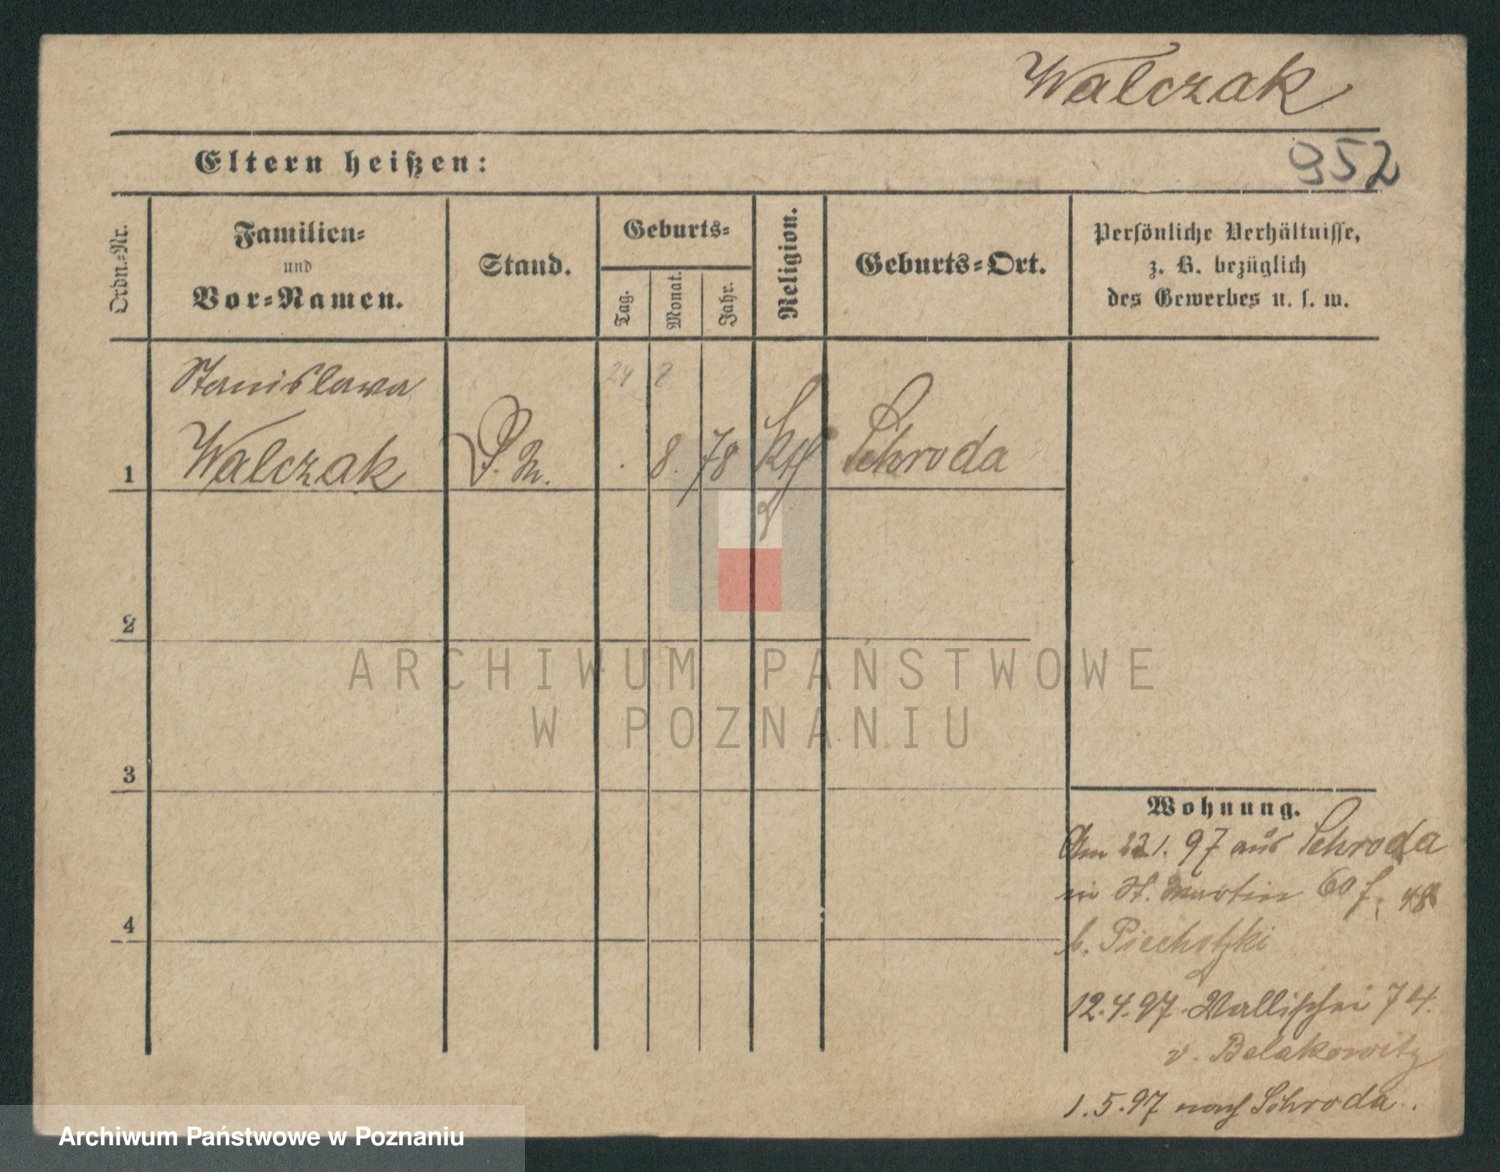 Walczak
952
Eltern heißen:
Ordn.-Nr.
Familien-
und
Vor-Namen.
Stand.
Geburts-
Tag.
Monat.
Jahr.
Religion.
Geburts-Ort.
Persönliche Verhältnisse,
z. B. bezüglich
des Gewerbes u. s. w.
24
Stanislawa
1 Walczak D. M. . 8. 78 kth Schroda
2
3
4
Wohnung.
Am 22.1. 97 aus Schroda
in St. Martin 60
b. Piechotzki
12.4.97. Wallischei 74.
v. Belakowitz
1.5.97 nach Schroda.
ARCHIWUM PAŃSTWOWE
W POZNANIU
Archiwum Państwowe w Poznaniu